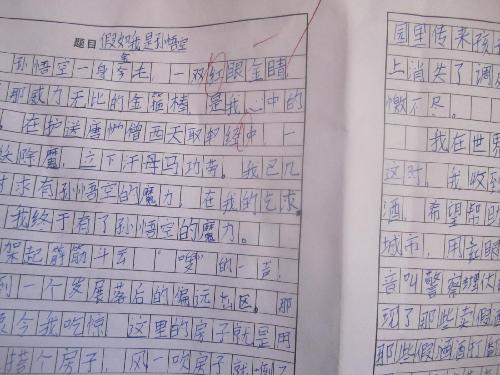 题目 假如我是孙悟空
孙悟空一身本事，一双红眼金睛
那威力无比的金箍棒，是我心中的
，在护送唐僧西天取经中，一
妖除魔，立下汗马功劳。我已几
求有孙悟空的魔力，在我的乞求
我终于有了孙悟空的魔力。
架起筋斗云，“嗖”的一声，
到一个发展落后的偏远山区。那
令我吃惊，这里的房子就是用
搭个房子，风一吹房子就倒了
园里传来孩
上消失了调
憾不尽。
我在世界
这时，我收到
酒，希望帮助
城市，用
音叫警察
现了那些卖假酒
那些假酒